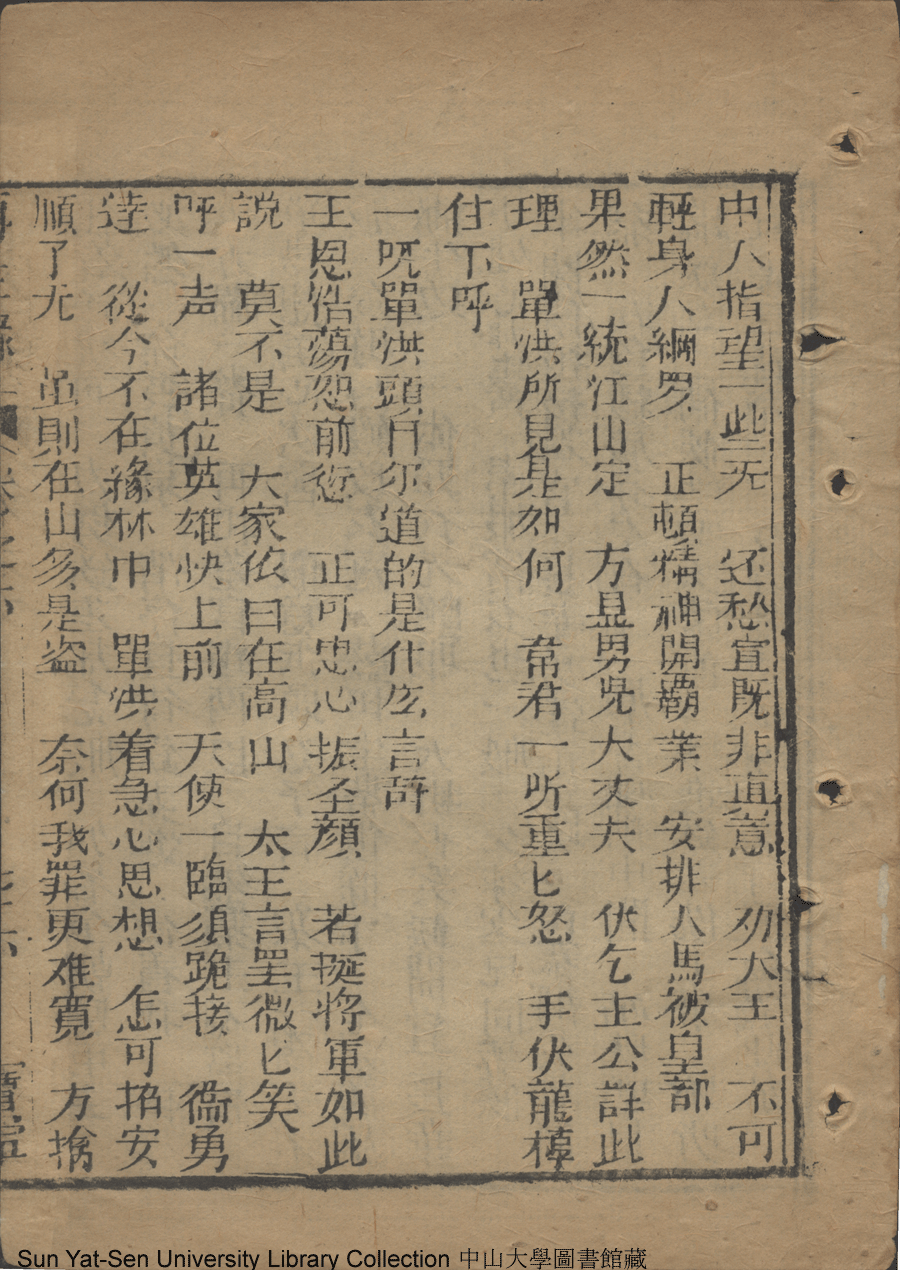 中人指望一些无 还愁宜既非真意 劝大王 不可
輕身入綱罗 正頓精神開覇業 安排人馬被皇部
果然一統江山定 方显男児大丈夫 伏乞主公詳此
理 單洪所見是如何 韋君一听重匕怒 手伏龍棹
住下呼
一呪單洪頭自尔道的是什庅言辞
王恩浩蕩恕前愆 正可忠心振圣顔 若挺将軍如此
說 莫不是 大家依旧在高山 太王言罢微匕笑
呼一声 諸位英雄快上前 天使一臨須跪接 衞勇
逵 從今不在緣林中 單洪着急心思想 怎可招安
順了尤 虽則在山多是盗 奈何我罪更难寬 方擒
Sun Yat-Sen University Library Collection 中山大學圖書館藏